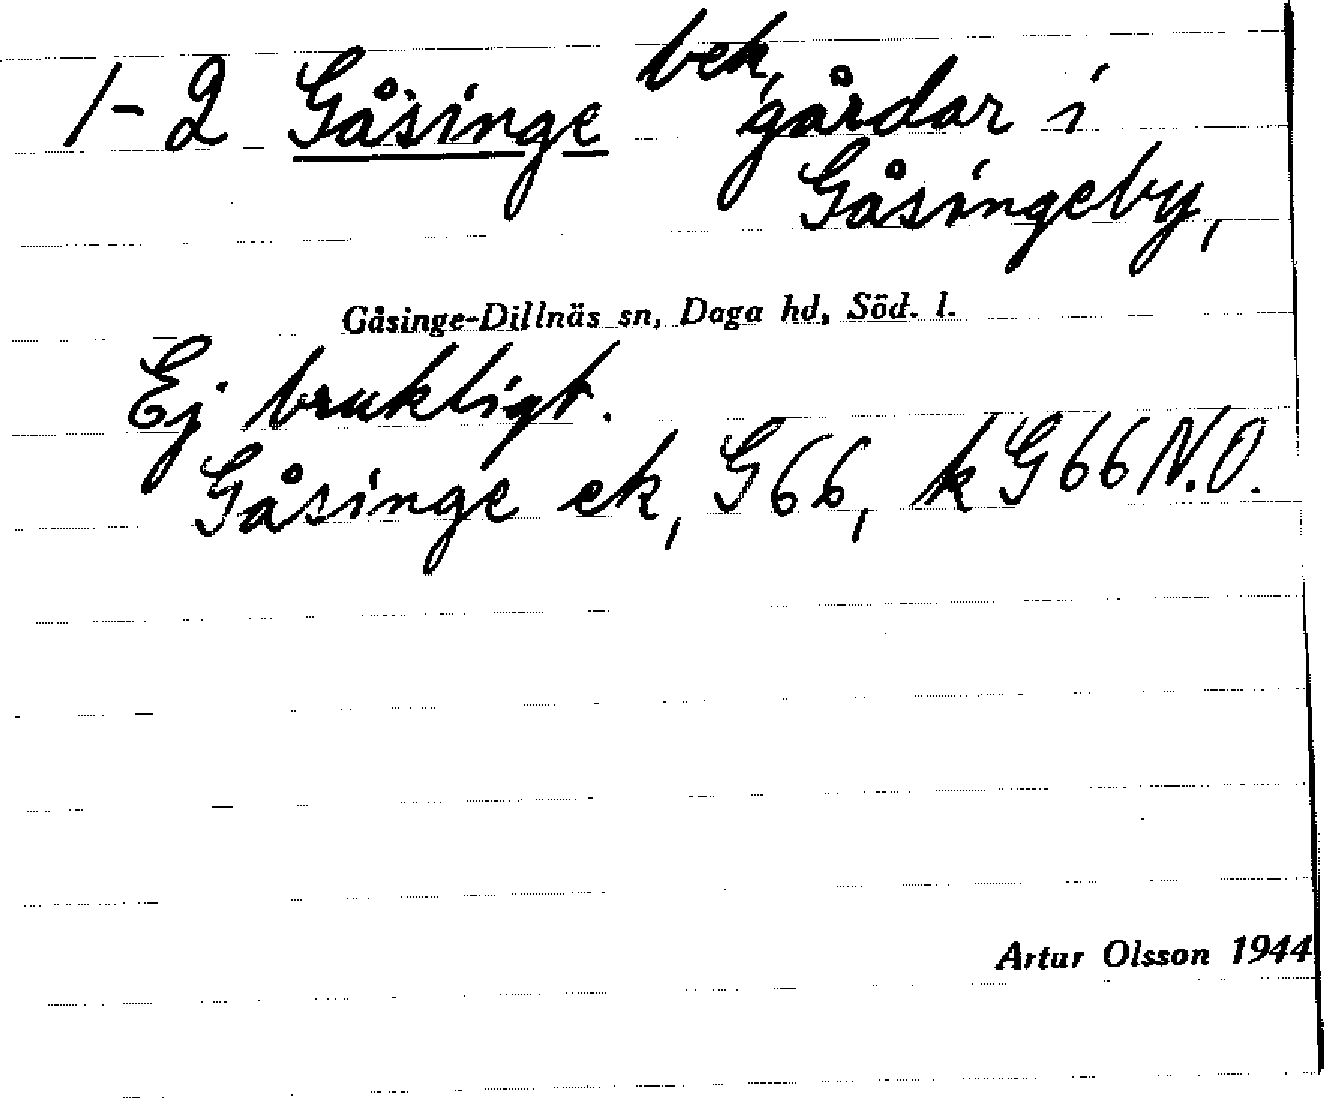 1-2 Gåsinge bek, gårdar i
Gåsingeby,
Gåsinge-Dillnäs sn, Daga hd, Söd. l.
Ej brukligt.
Gåsinge ek, G66, k G66 N.O.
Artur Olsson 1944